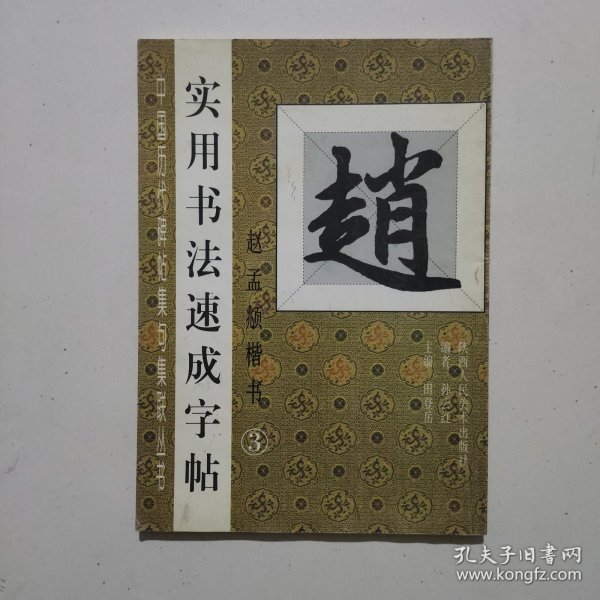 趙
实用书法速成字帖
中国历代碑帖集句集联丛书
赵孟頫楷书
③
陕西人民美术出版社
编者 孙长红
主编
孔夫子旧书网
www.kongfz.com